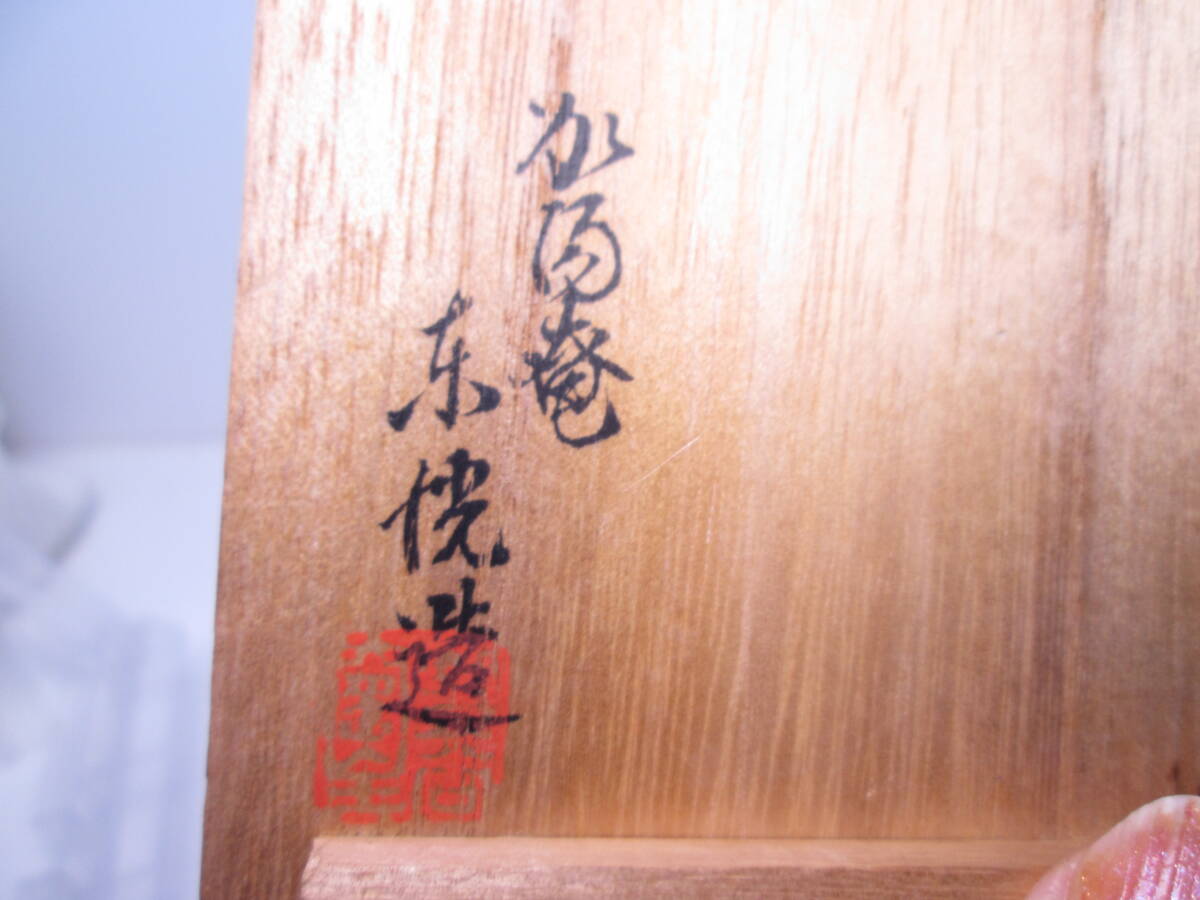 加陽庵
東悦造